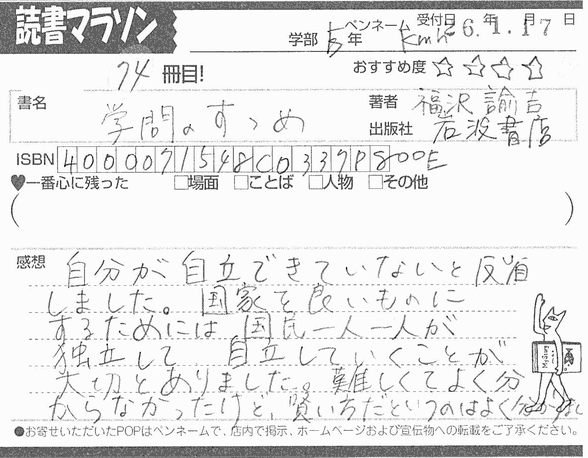 読書マラソン
学部 年 ペンネーム Kmh 受付日 26年1月17日
74冊目!
おすすめ度 ☆☆☆☆
書名 学問のすゝめ
著者 福沢諭吉
出版社 岩波書店
ISBN 4000071548C0337P800E
♥一番心に残った □場面 □ことば □人物 □その他
( )
感想
自分が自立できていないと反省
しました。国家を良いものに
するためには国民一人一人が
独立して 自立していくことが
大切とありました。難しくてよく分
からなかったけど、賢い
●お寄せいただいたPOPはペンネームで、店内で掲示、ホームページおよび宣伝物への転載をご了承ください。